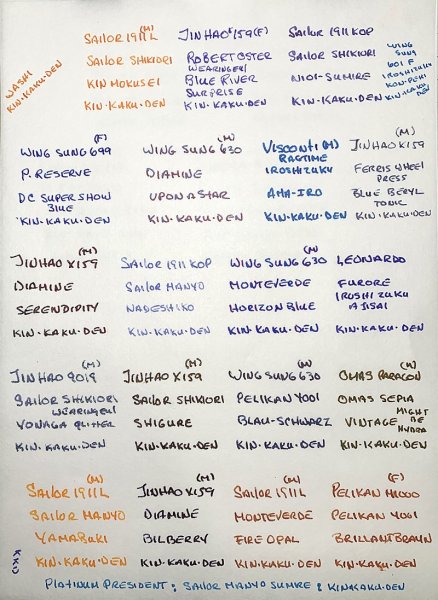 WASHI
KIN·KAKU·DEN
SAILOR 1911L (M)
SAILOR SHIKIORI
KIN MOKUSEI
KIN·KAKU·DEN
JINHAO X159 (F)
ROBERT OSTER
BLUE RIVER
SURPRISE
KIN·KAKU·DEN
SAILOR 1911 KOP
SAILOR SHIKIORI
NIOI-SUMIRE
KIN·KAKU·DEN
WING
SUNG
601 F
IROSHIZUKU
KON-PEKI
KIN·KAKU
DEN
(F)
WING SUNG 699
P. RESERVE
DC SUPERSHOW
BLUE
KIN·KAKU·DEN
(M)
WING SUNG 630
DIAMINE
UPON A STAR
KIN·KAKU·DEN
VISCONTI (M)
RAGTIME
IROSHIZUKU
AMA-IRO
KIN·KAKU·DEN
(M)
JINHAO X159
FERRIS WHEEL
PRESS
BLUE BERYL
TONIC
KIN·KAKU·DEN
(M)
JINHAO X159
DIAMINE
SERENDIPITY
KIN·KAKU·DEN
SAILOR 1911 KOP
SAILOR MANYO
NADESHIKO
KIN·KAKU·DEN
(M)
WING SUNG 630
MONTEVERDE
HORIZON BLUE
KIN·KAKU·DEN
LEONARDO
FURORE
IROSHIZUKU
AJISAI
KIN·KAKU·DEN
(M)
JINHAO 9019
SAILOR SHIKIORI
YONAGA GLITTER
KIN·KAKU·DEN
(M)
JINHAO X159
SAILOR SHIKIORI
SHIGURE
KIN·KAKU·DEN
(M)
WING SUNG 630
PELIKAN YOGI
BLAU-SCHWARZ
KIN·KAKU·DEN
(M)
OMAS PARAGON
OMAS SEPIA
VINTAGE MIGHT
BE
HYDRA
KIN·KAKU·DEN
(M)
SAILOR 1911L
SAILOR MANYO
YAMABUKI
KIN·KAKU·DEN
KKD
(M)
JINHAO X159
DIAMINE
BILBERRY
KIN·KAKU·DEN
(M)
SAILOR 1911L
MONTEVERDE
FIRE OPAL
KIN·KAKU·DEN
(F)
PELIKAN
PELIKAN YOGI
BRILLANTBRAUN
KIN·KAKU·DEN
PLATINUM PRESIDENT; SAILOR MANYO SUMRE; KINKAKU·DEN